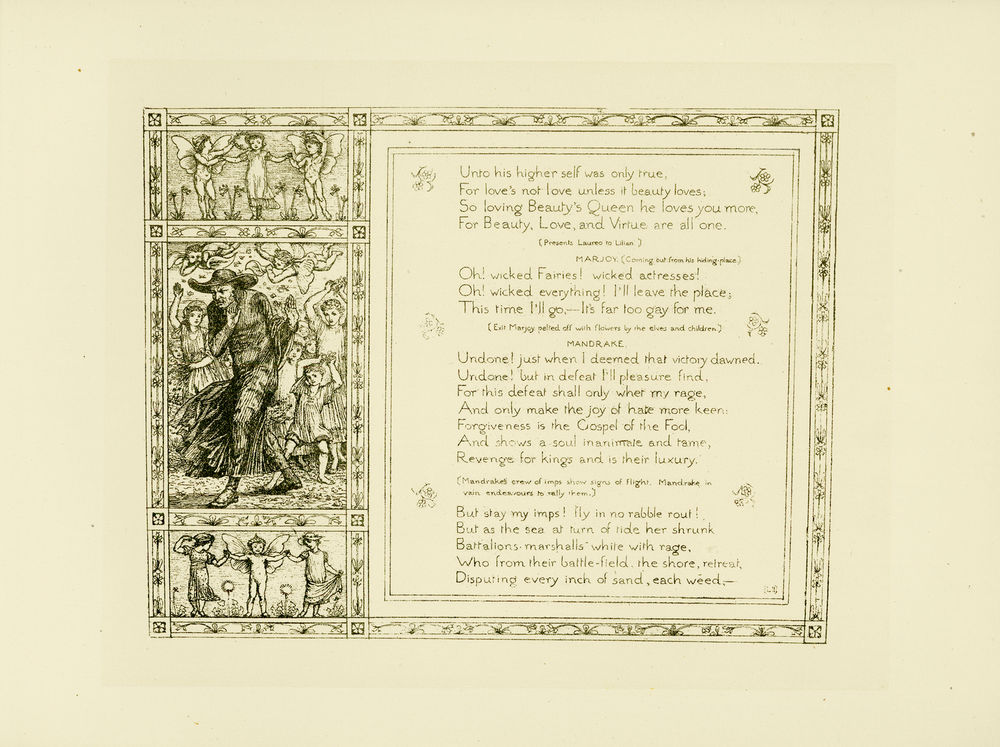 Unto his higher self was only true,
For love's not love unless it beauty loves;
So loving Beauty's Queen he loves you more,
For Beauty, Love, and Virtue are all one.
(Presents Laureo to Lilian)
MARJOY. (Coming out from his hiding-place)
Oh! wicked Fairies! wicked actresses!
Oh! wicked everything! I'll leave the place;
This time I'll go,—It's far too gay for me.
(Exit Marjoy pelted off with flowers by the elves and children.)
MANDRAKE.
Undone! just when I deemed that victory dawned.
Undone! but in defeat I'll pleasure find,
For this defeat shall only whet my rage,
And only make the joy of hate more keen:
Forgiveness is the Gospel of the Fool,
And shows a soul inanimate and tame,
Revenge for kings and is their luxury.
(Mandrake's crew of imps show signs of flight. Mandrake in
vain endeavours to rally them.)
But stay my imps! fly in no rabble rout!
But as the sea at turn of tide her shrunk
Battalions marshalls white with rage,
Who from their battle-field, the shore, retreat,
Disputing every inch of sand, each weed,—